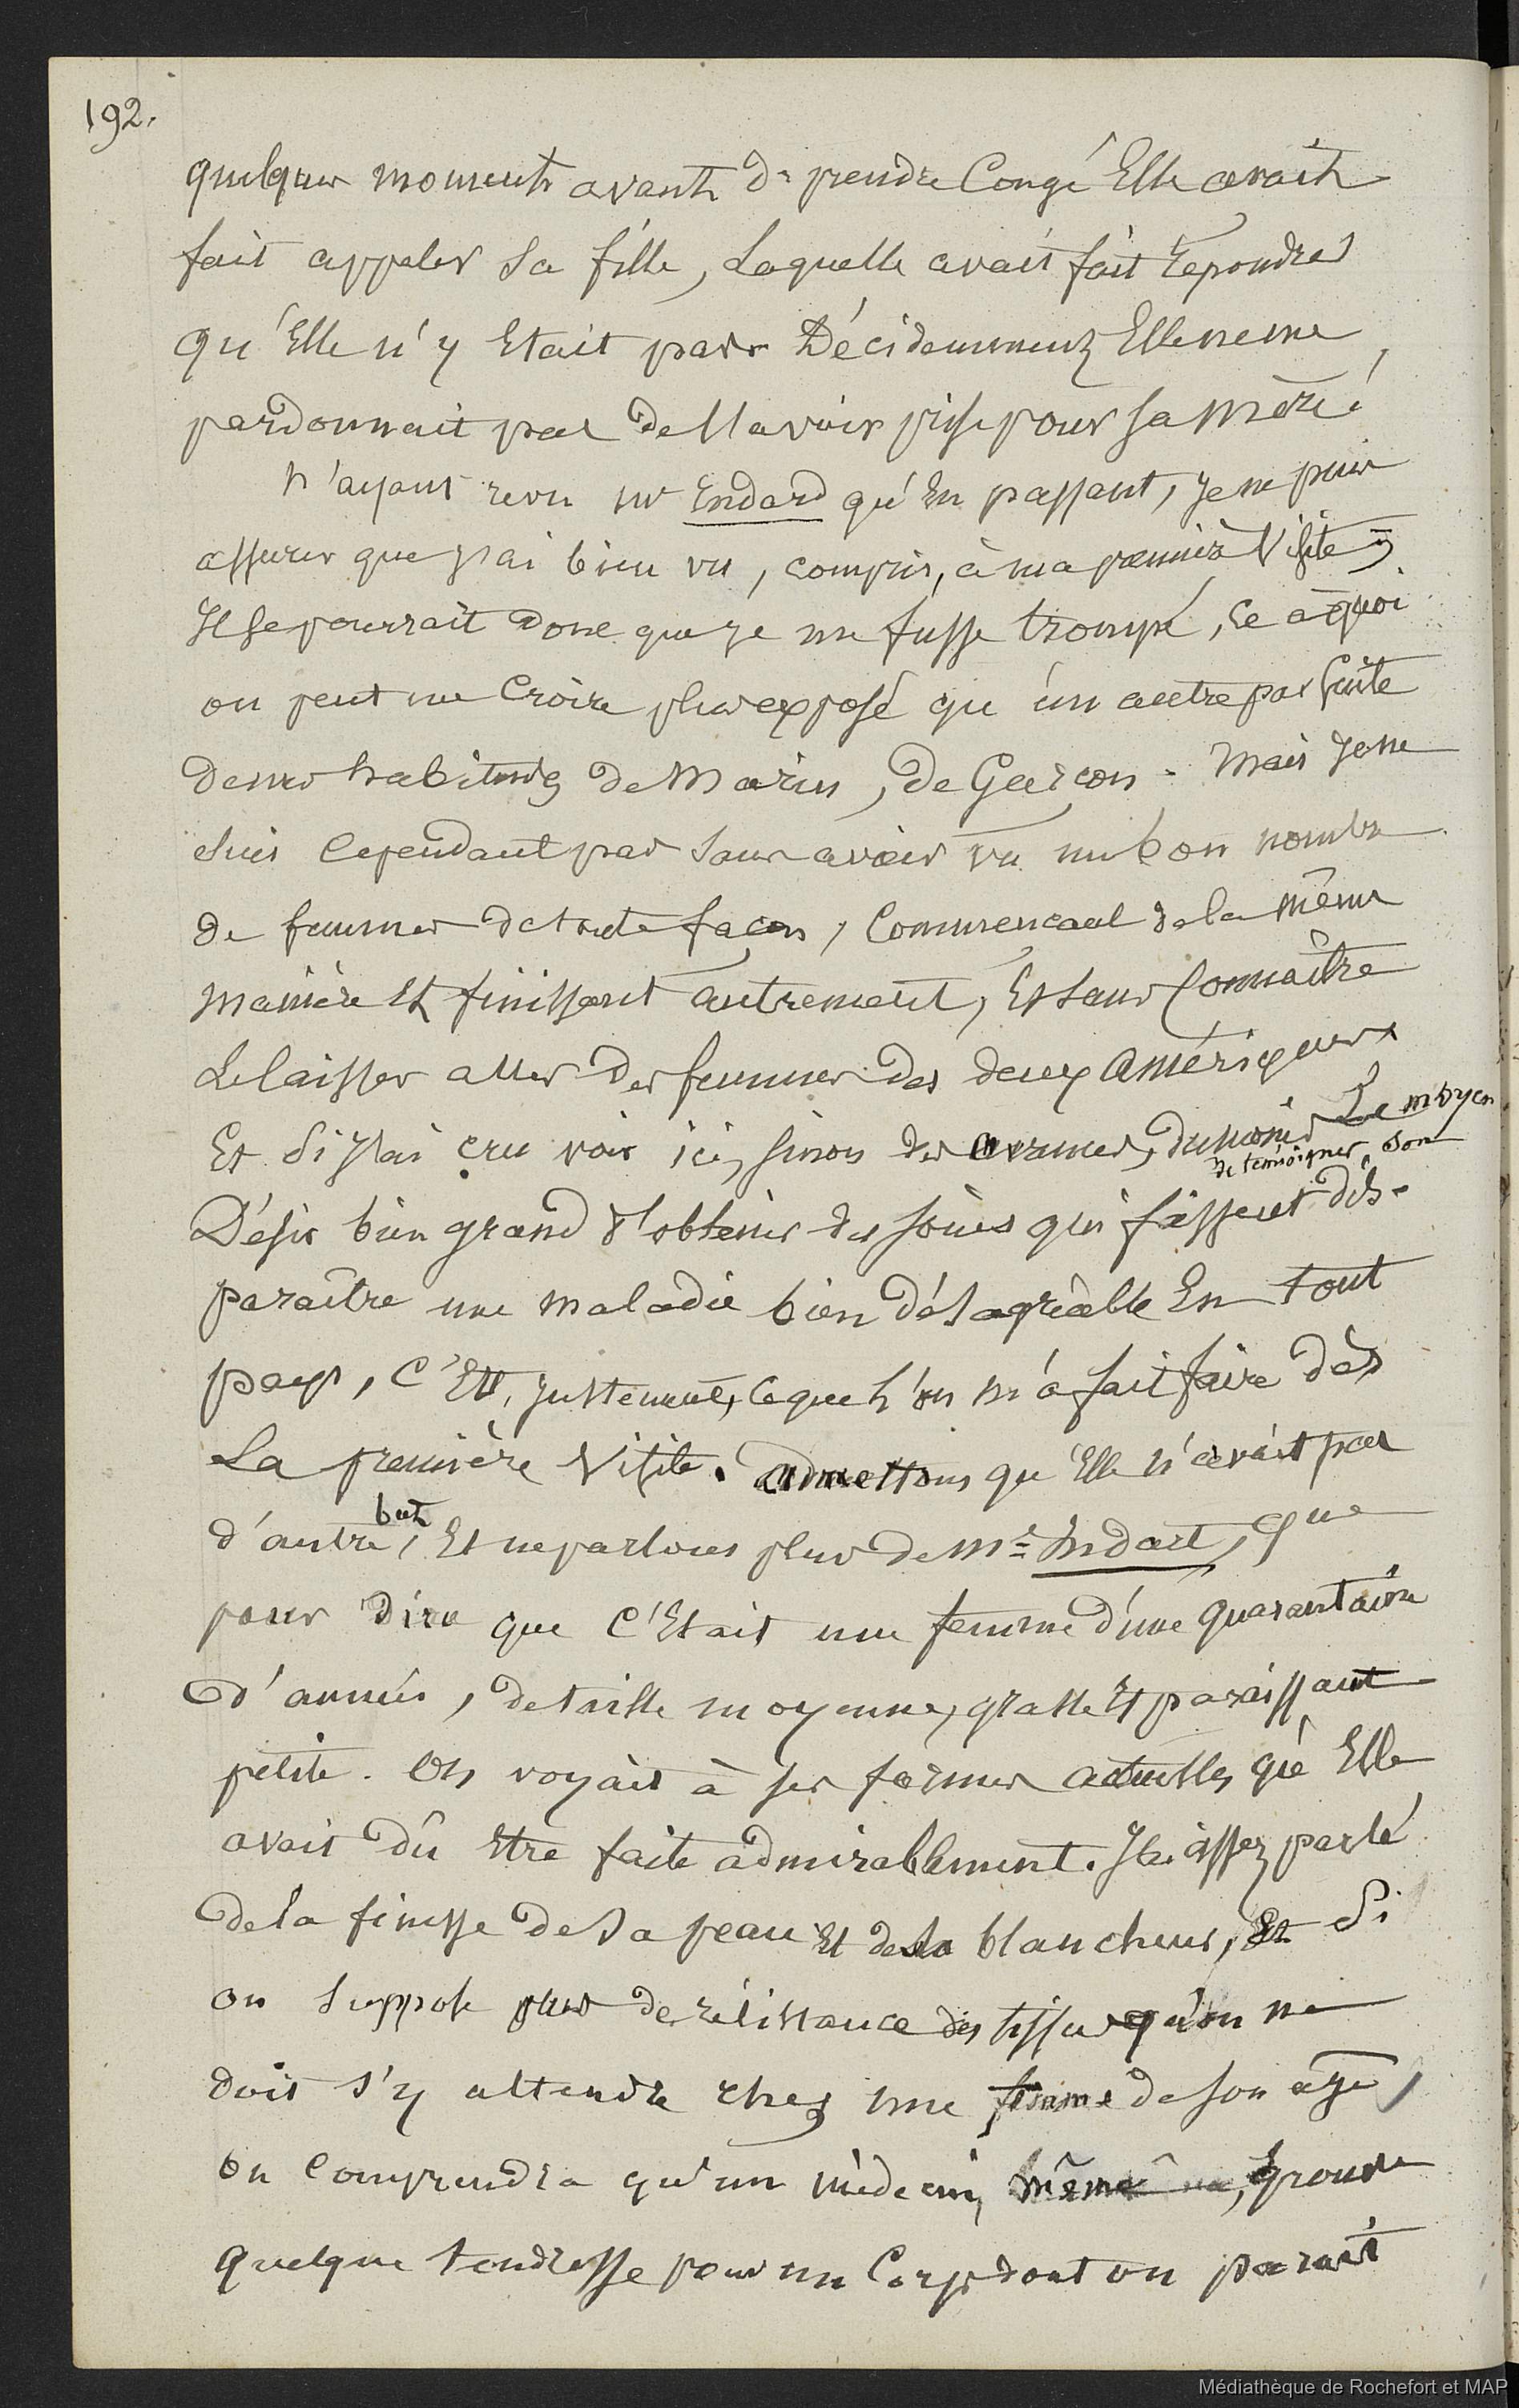 192.
quelques moments avant de prendre Congé Elle avait
fait appeler sa fille, laquelle avait fait répondre
qu'Elle n'y Etait pas. Décidemment Elle ne me
pardonnait pas de l'avoir prise pour sa mère!
N'ayant revu Mr Endard qu'En passant, je ne puis
assurer que j'ai bien vu, compris, à ma première Visite;
Il se pourrait donc que je me fusse trompé, ce à quoi
on peut me Croire plus exposé qu'un autre par suite
de mes habitudes de Marin, de Garçon. Mais je ne
suis cependant pas sans avoir vu un bon nombre
de femmes de toute façon, Commencant de la même
manière Et finissant autrement, Et sans Connaître
le laisser aller des femmes des deux Amériques
Et si j'ai cru voir ici, sinon des avances, du moins Le moyen
de temoigner, son
Désir bien grand d'obtenir des soins qui fassent dis-
paraître une maladie bien désagréable En tout
pays, C'Est, justement, ce que l'on m'a fait faire dès
La première Visite. Admettons qu'Elle n'avait pas
but
d'autre, Et ne parlons plus de Me Indart, que
pour dire que C'Etait une femme d'une quarantaine
d'années, de taille moyenne, grasse Et paraissant
petite. On voyait à ses formes actuelles, qu'Elle
avait dû Etre faite admirablement. J'ai assez parlé
de la finesse de sa peau Et de sa blancheur, Et si
on suppose plus de résistance des tissus qu'on ne
doit s'y attendre chez une femme de son âge,
on Comprendra qu'un médecin, même, Eprouve
quelque tendresse pour un Corps dont on parait
Médiathèque de Rochefort et MAP